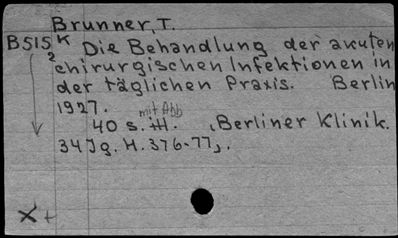 Brunner, T.
B515 K Die Behandlung der akuten
2 chirurgischen Infektionen in
der täglichen Praxis. Berlin
1927. mit Abb
40 s. ill. (Berliner Klinik.
34 Jg. H. 376-77).
X +